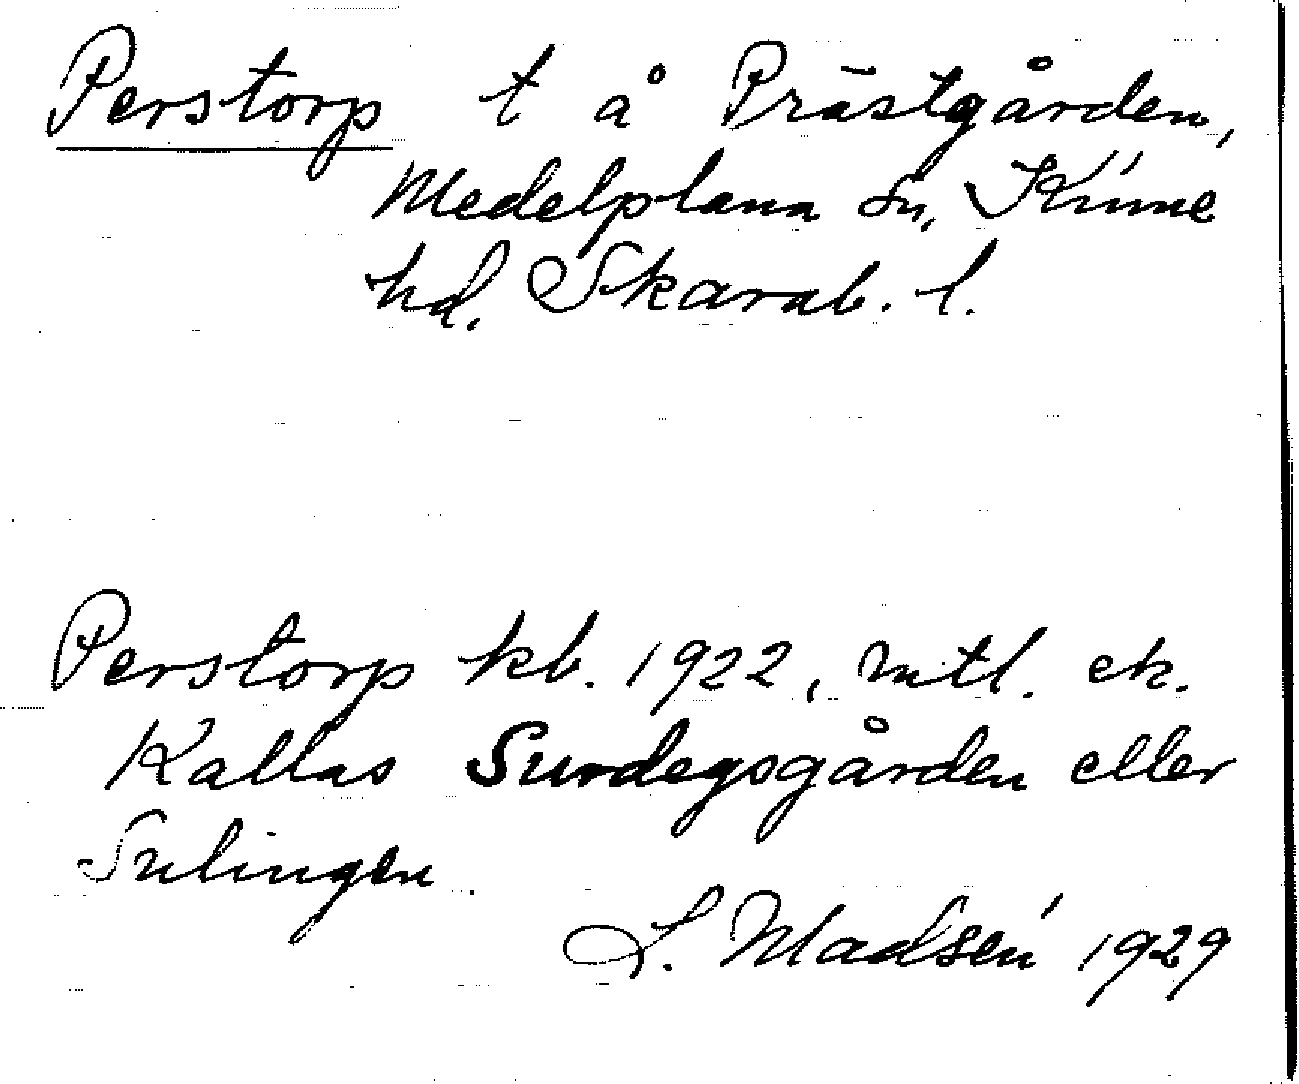 Perstorp t å Prästgården,
Medelplana sn, Kinne
hd. Skarab. l.
Perstorp kb. 1922, mtl. ek.
Kallas Surdegsgården eller
Sulingen
L. Madsén 1929